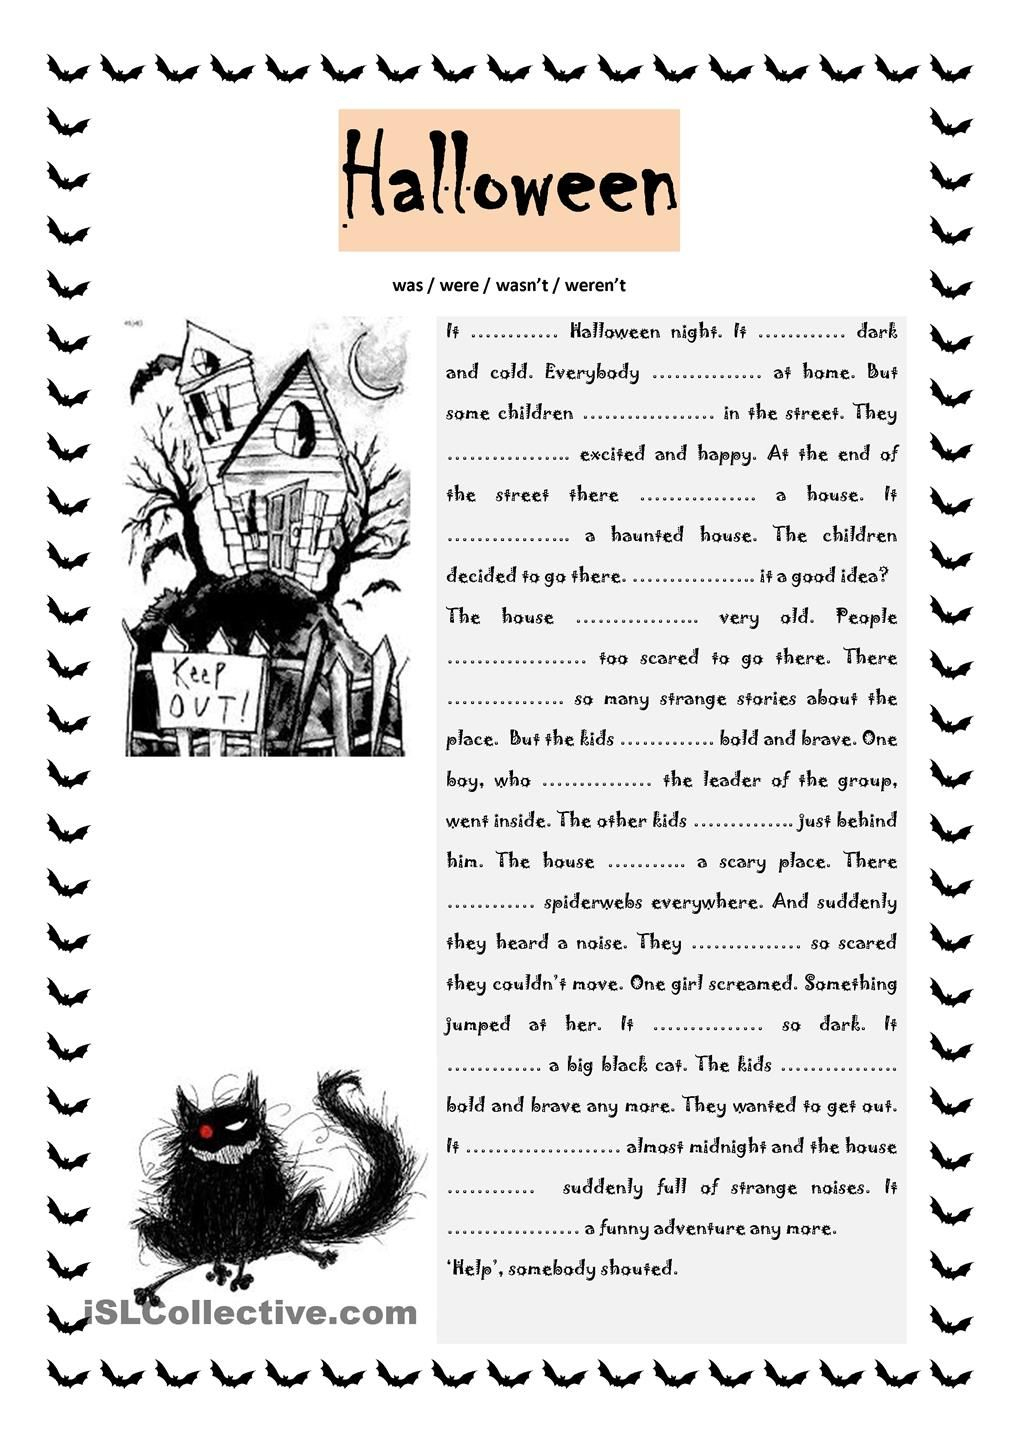 Halloween
was / were / wasn't / weren't
It ………… Halloween night. It ………… dark
and cold. Everybody …………… at home. But
some children ……………… in the street. They
…………….. excited and happy. At the end of
the street there ……………. a house. It
…………….. a haunted house. The children
decided to go there. …………….. it a good idea?
The house …………….. very old. People
………………. too scared to go there. There
……………. so many strange stories about the
place. But the kids …………. bold and brave. One
boy, who …………… the leader of the group,
went inside. The other kids ………….. just behind
him. The house ……….. a scary place. There
………… spiderwebs everywhere. And suddenly
they heard a noise. They …………… so scared
they couldn't move. One girl screamed. Something
jumped at her. It …………… so dark. It
…………. a big black cat. The kids …………….
bold and brave any more. They wanted to get out.
It ………………… almost midnight and the house
………… suddenly full of strange noises. It
……………… a funny adventure any more.
'Help', somebody shouted.
KEEP
OUT!
iSLCollective.com